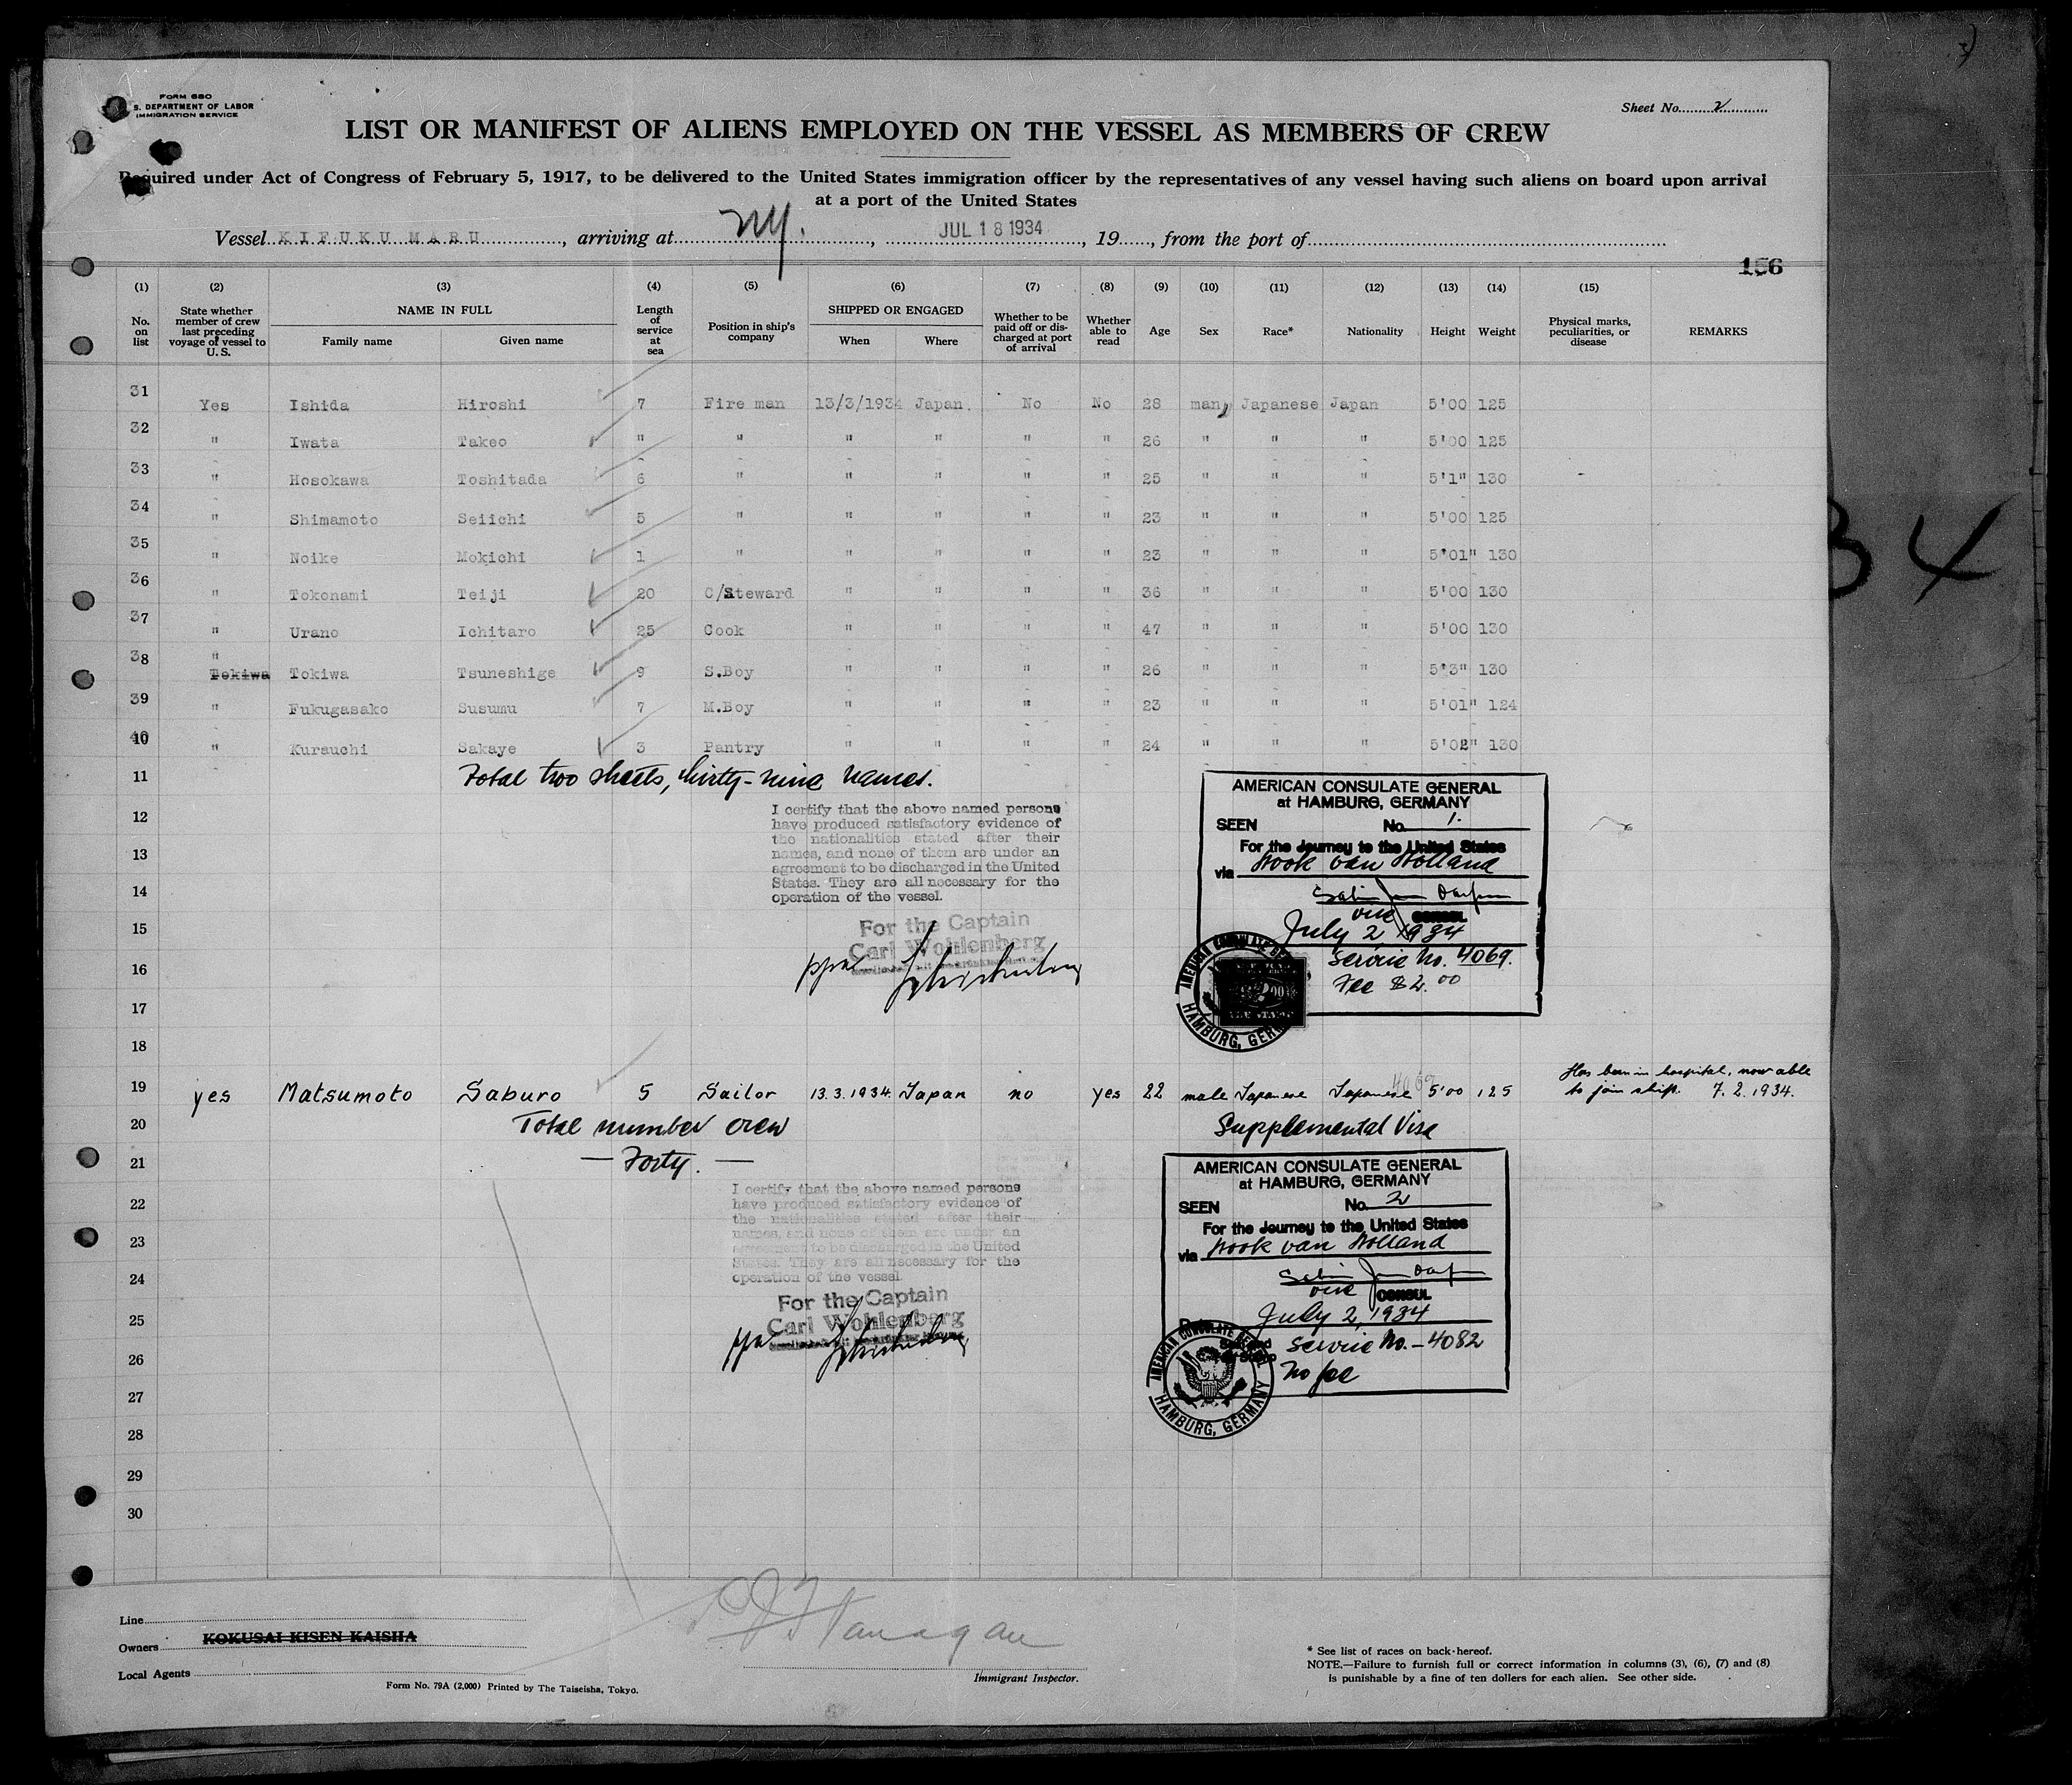 FORM 680
S. DEPARTMENT OF LABOR
IMMIGRATION SERVICE
Sheet No. 2
LIST OR MANIFEST OF ALIENS EMPLOYED ON THE VESSEL AS MEMBERS OF CREW
Required under Act of Congress of February 5, 1917, to be delivered to the United States immigration officer by the representatives of any vessel having such aliens on board upon arrival
at a port of the United States
Vessel KIFUKU MARU, arriving at NY., JUL 18 1934, 19, from the port of
156
(1) (2) (3) (4) (5) (6) (7) (8) (9) (10) (11) (12) (13) (14) (15)
No. on list
State whether member of crew last preceding voyage of vessel to U. S.
NAME IN FULL
Family name
Given name
Length of service at sea
Position in ship's company
SHIPPED OR ENGAGED
When
Where
Whether to be paid off or discharged at port of arrival
Whether able to read
Age
Sex
Race*
Nationality
Height
Weight
Physical marks, peculiarities, or disease
REMARKS
31 Yes Ishida Hiroshi 7 Fire man 13/3/1934 Japan. No No 28 man, Japanese Japan 5'00 125
32 " Iwata Takeo " " " " " " 26 " " " 5'00 125
33 " Hosokawa Toshitada 6 " " " " " 25 " " " 5'1" 130
34 " Shimamoto Seiichi 5 " " " " " 23 " " " 5'00 125
35 " Noike Mokichi 1 " " " " " 23 " " " 5'01" 130
36 " Tokonami Teiji 20 C/Steward " " " " 36 " " " 5'00 130
37 " Urano Ichitaro 25 Cook " " " " 47 " " " 5'00 130
38 " Tokiwa Tokiwa Tsuneshige 9 S.Boy " " " " 26 " " " 5'3" 130
39 " Fukugasako Susumu 7 M.Boy " " " " 23 " " " 5'01" 124
40 " Kurauchi Sakaye 3 Pantry " " " " 24 " " " 5'02" 130
11 Total two sheets, thirty-nine names.
12
13
14
15
16
17
18
I certify that the above named persons
have produced satisfactory evidence of
the nationalities stated after their
names, and none of them are under an
agreement to be discharged in the United
States. They are all necessary for the
operation of the vessel.
For the Captain
Carl Wohlenberg
ppa
AMERICAN CONSULATE GENERAL
at HAMBURG, GERMANY
SEEN No. 1.
For the Journey to the United States
via Hook van Holland
vice CONSUL
July 2, 1934
Service No. 4069.
Fee $2.00
AMERICAN CONSULATE GENERAL
HAMBURG, GERMANY
4069
Has been in hospital, now able
to join ship. 7.2.1934.
19 yes Matsumoto Saburo 5 Sailor 13.3.1934. Japan no yes 22 male Japanese Japanese 5'00 125
20 Total number crew
Supplemental Visa
21 — Forty. —
22
23
24
25
26
27
28
29
30
I certify that the above named persons
have produced satisfactory evidence of
the nationalities stated after their
names, and none of them are under an
agreement to be discharged in the United
States. They are all necessary for the
operation of the vessel.
For the Captain
Carl Wohlenberg
ppa
AMERICAN CONSULATE GENERAL
at HAMBURG, GERMANY
SEEN No. 2
For the Journey to the United States
via Hook van Holland
vice CONSUL
July 2, 1934
Service No. - 4082
No fee
AMERICAN CONSULATE GENERAL
HAMBURG, GERMANY
34
Line
Owners KOKUSAI KISEN KAISHA
Local Agents
Form No. 79A (2,000) Printed by The Taiseisha, Tokyo.
Flanagan
Immigrant Inspector.
* See list of races on back-hereof.
NOTE.—Failure to furnish full or correct information in columns (3), (6), (7) and (8)
is punishable by a fine of ten dollars for each alien. See other side.